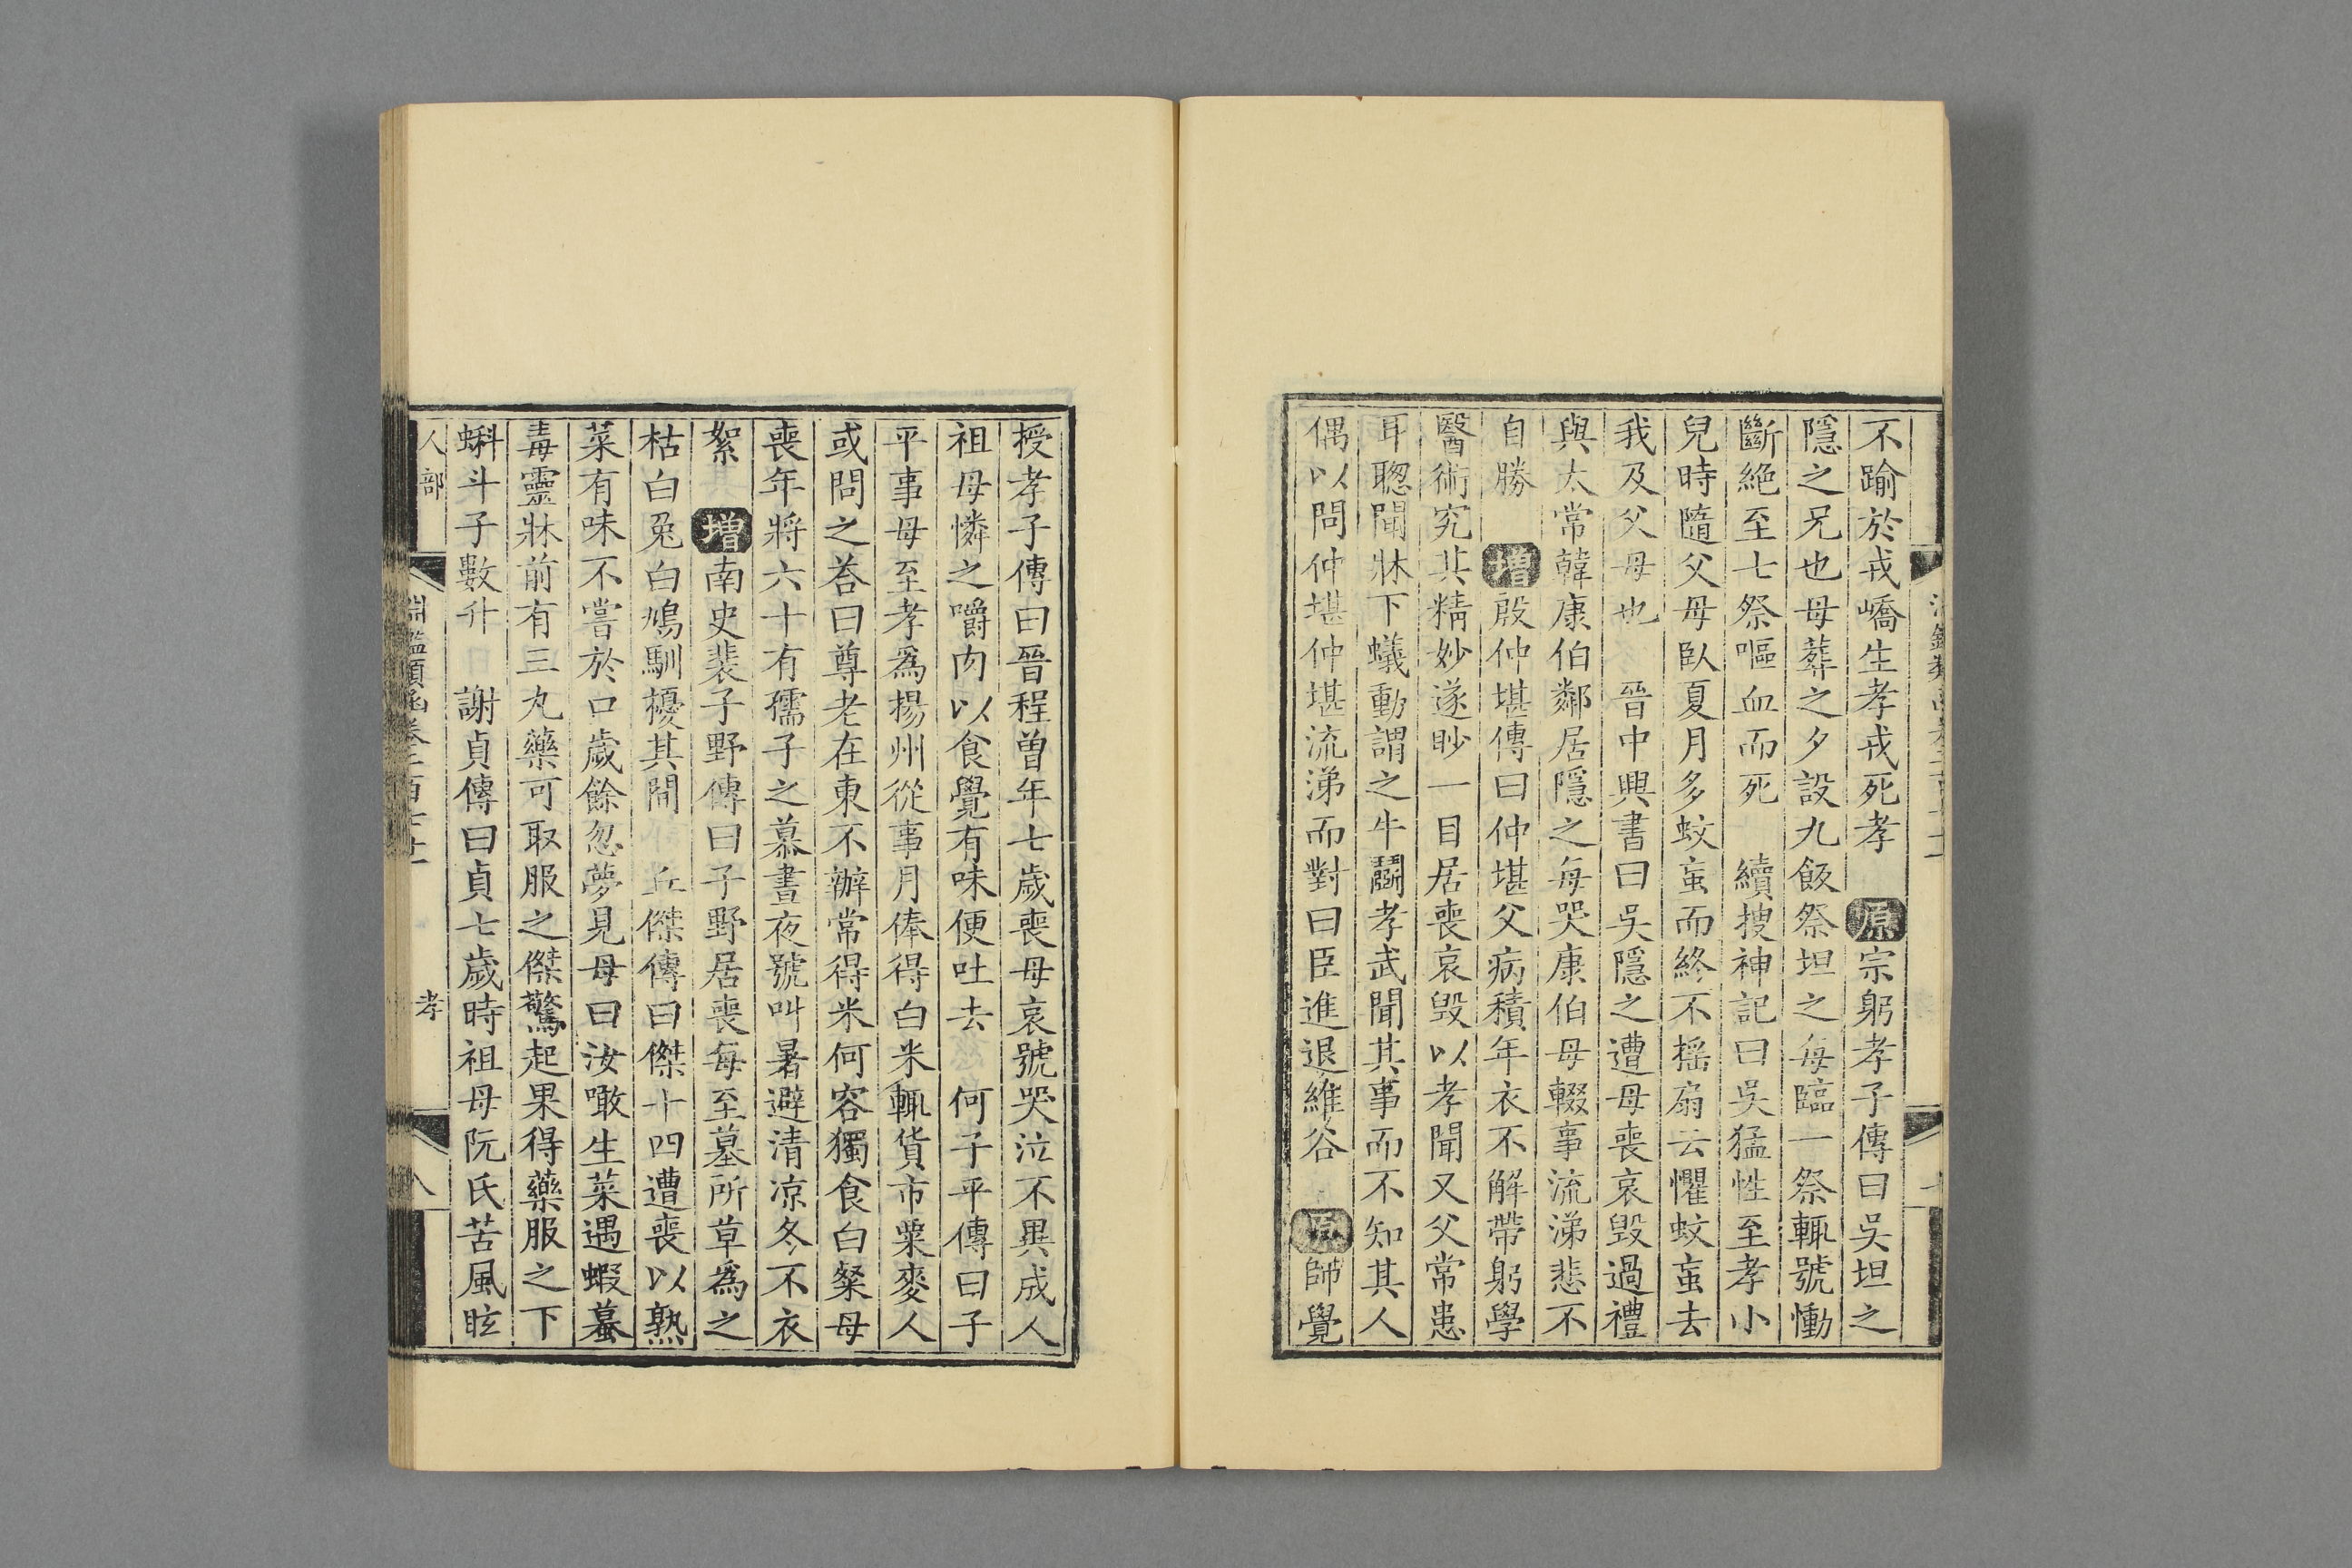 不踰於戎嶠生孝戎死孝　原宗躬孝子傳曰吳坦之
隱之兄也母葬之夕設九飯祭坦之每臨一祭輒號慟
斷絶至七祭嘔血而死　續搜神記曰吳猛性至孝小
兒時隨父母臥夏月多蚊䖟而終不搖扇云懼蚊䖟去
我及父母也　晉中興書曰吳隱之遭母喪哀毀過禮
與太常韓康伯鄰居隱之每哭康伯母輟事流涕悲不
自勝　增殷仲堪傳曰仲堪父病積年衣不解帶躬學
醫術究其精妙遂眇一目居喪哀毀以孝聞又父常患
耳聰聞牀下蟻動謂之牛鬭孝武聞其事而不知其人
偶以問仲堪仲堪流涕而對曰臣進退維谷　原師覺
授孝子傳曰晉程曾年七歲喪母哀號哭泣不異成人
祖母憐之嚼肉以食覺有味便吐去　何子平傳曰子
平事母至孝爲揚州從事月俸得白米輒貨市粟麥人
或問之荅曰尊老在東不辦常得米何容獨食白粲母
喪年將六十有孺子之慕晝夜號叫暑避清凉冬不衣
絮　增南史裴子野傳曰子野居喪每至墓所草爲之
枯白兔白鳩馴擾其間　丘傑傳曰傑十四遭喪以熟
菜有味不嘗於口歲餘忽夢見母曰汝噉生菜遇蝦蟇
毒靈牀前有三丸藥可取服之傑驚起果得藥服之下
蝌斗子數升　謝貞傳曰貞七歲時祖母阮氏苦風眩
人部　淵鑑類函卷二百七十一　孝　八